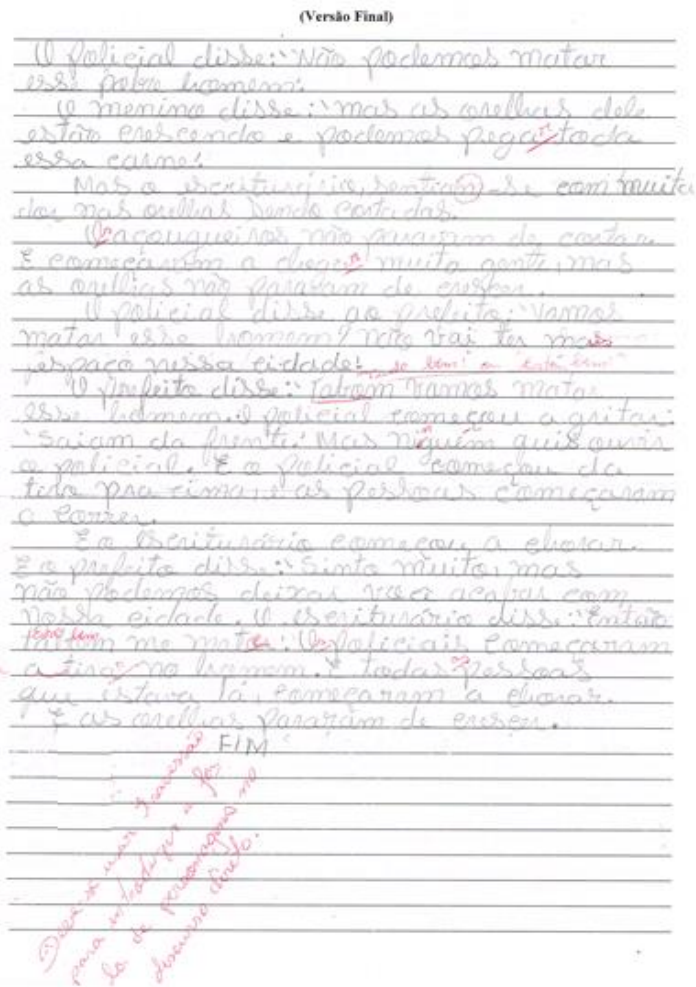 (Versão Final)
O policial disse: "Não podemos matar
esse pobre homem."
O menino disse: "mas as orelhas dele
estão crescendo e podemos pegar toda
essa carne!
Mas o escriturário, sentiam-se com muita
dor nas orelhas sendo cortadas.
Os açougueiros não paravam de cortar.
E começaram a chegar muita gente, mas
as orelhas não paravam de crescer.
O policial disse ao prefeito: "Vamos
matar esse homem? Não vai ter mais
espaço nessa cidade!
"tá bem" ou "está bem"
O prefeito disse: "Tabom vamos matar
esse homem. O policial começou a gritar:
"Saiam da frente! Mas niguém quis ouvir
o policial. E o policial começou da
tiro pra cima, e as pessoas começaram
a correr.
E o escriturário começou a chorar.
E o prefeito disse: "Sinto muito, mas
não podemos deixar você acabar com
nossa cidade. O escriturário disse: "Então
está bem
tabom me mate". Os policiais começaram
a tirar no homem. E todas as pessoas
que estava lá, começaram a chorar.
E as orelhas pararam de creser.
FIM
Deve-se usar travessão
para introduzir a fa-
la de personagens no
discurso direto.